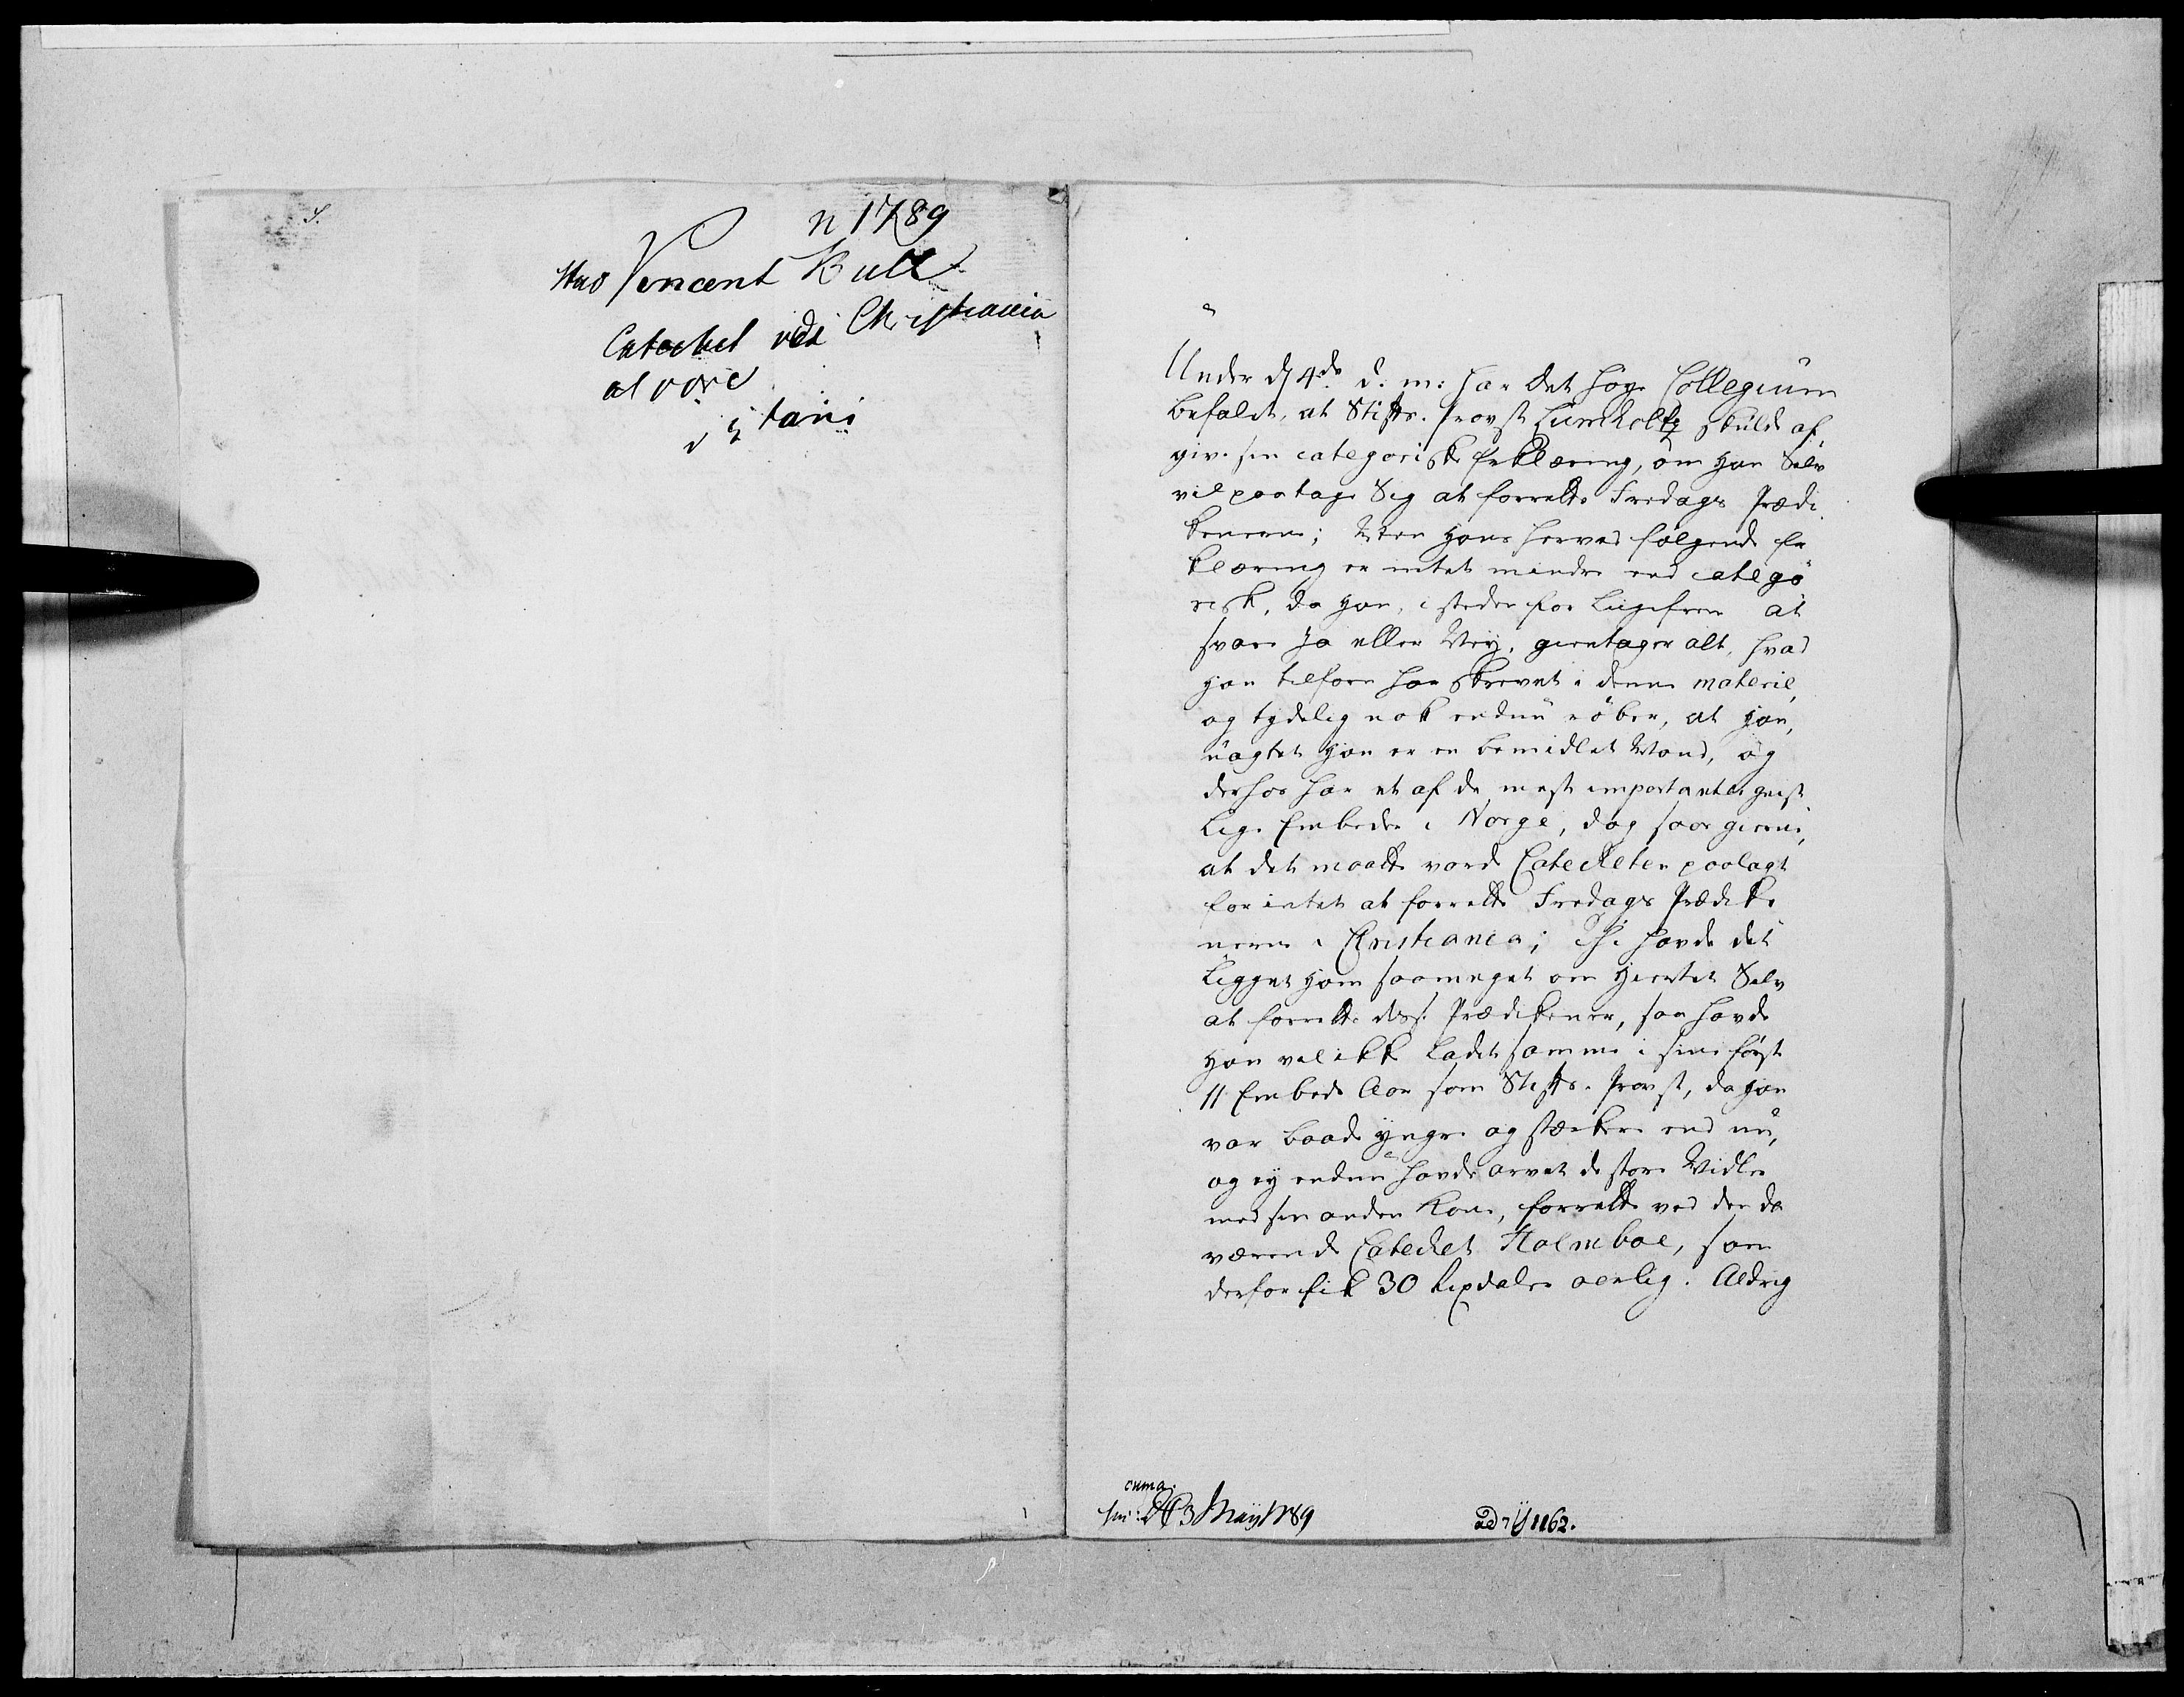 n 1789
Vincent Bull
Catechet ved Christiania
at være
Under d 4de d. m: har det høye Collegium
befalet, at Stifts-Provst Lumholtz skulde af-
give sin categoriske Erklæring, om han Selv
vil paatage Sig at forrette Fredags Prædi-
kenerne; Men hans herved følgende Er-
klæring er intet mindre end catego-
risk, da han, i steden for ligefrem at
svare Ja eller Ney, gientager alt, hvad
han tilforn har skrevet i denne materie,
og tydelig nok endnu røber, at han,
uagtet han er en bemidlet Mand, og
derhos har et af de mest importante geist-
lige Embeder i Norge, dog saae gierne,
at det maatte vorde Catecheten paalagt
for intet at forrette Fredags Prædike-
nerne i Christiania; Thi havde det
ligget ham saameget om Hiertet Selv
at forrette disse Prædikener, saa havde
han vel ikke ladet samme i sine første
11 Embeds Aar som Stifts-Provst, da han
var baade yngre og stærkere end nu,
og ey endnu havde arvet de store Midler
med sin anden Kone, forrette ved den da
værende Catechet Holmboe, som
derfor fik 30 Rixdaler aarlig. Aldrig
3 Maij 1789
ad 1162.